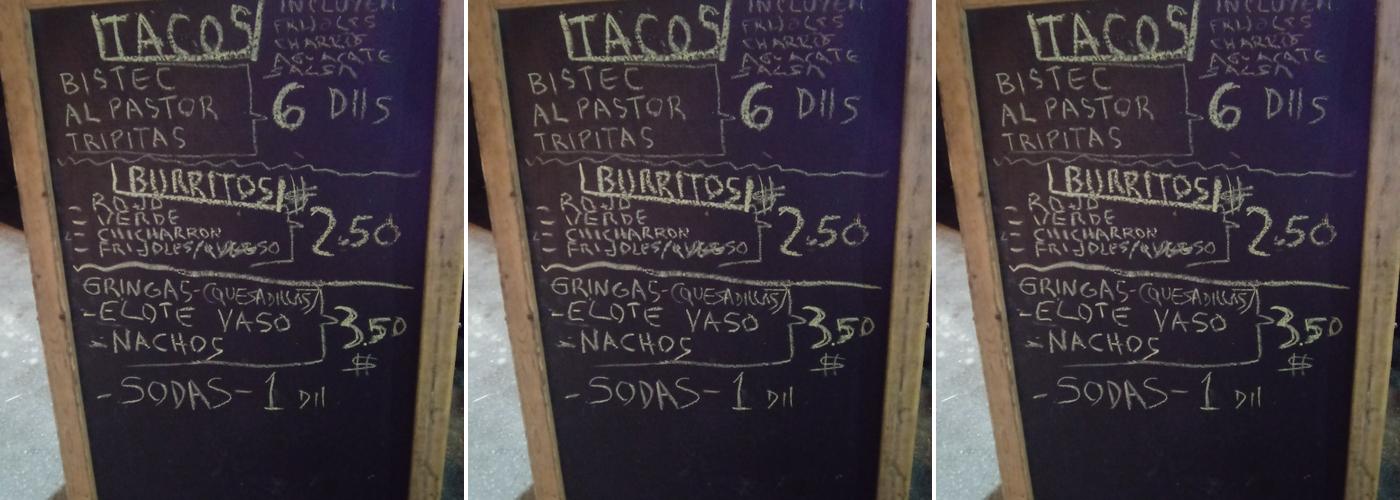 TACOS
INCLUYEN
FRIJOLES
CHARROS
AGUACATE
SALSA
BISTEC
AL PASTOR
TRIPITAS
6 Dlls
BURRITOS #
- ROJO
- VERDE
- CHICHARRON
- FRIJOLES/QUESO
2.50
GRINGAS-(QUESADILLAS)
-ELOTE VASO
-NACHOS
3.50
$
-SODAS-1 Dll
TACOS
INCLUYEN
FRIJOLES
CHARROS
AGUACATE
SALSA
BISTEC
AL PASTOR
TRIPITAS
6 Dlls
BURRITOS #
- ROJO
- VERDE
- CHICHARRON
- FRIJOLES/QUESO
2.50
GRINGAS-(QUESADILLAS)
-ELOTE VASO
-NACHOS
3.50
$
-SODAS-1 Dll
TACOS
INCLUYEN
FRIJOLES
CHARROS
AGUACATE
SALSA
BISTEC
AL PASTOR
TRIPITAS
6 Dlls
BURRITOS #
- ROJO
- VERDE
- CHICHARRON
- FRIJOLES/QUESO
2.50
GRINGAS-(QUESADILLAS)
-ELOTE VASO
-NACHOS
3.50
$
-SODAS-1 Dll